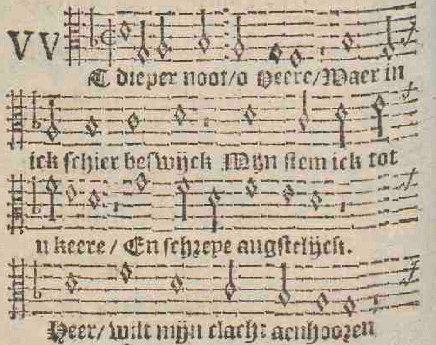 VV
T dieper noot/o Heere/Waer in
ick schier beswijck Mijn stem ick tot
u keere/ En schreye angstelijck.
Heer/ wilt mijn clacht aenhooren